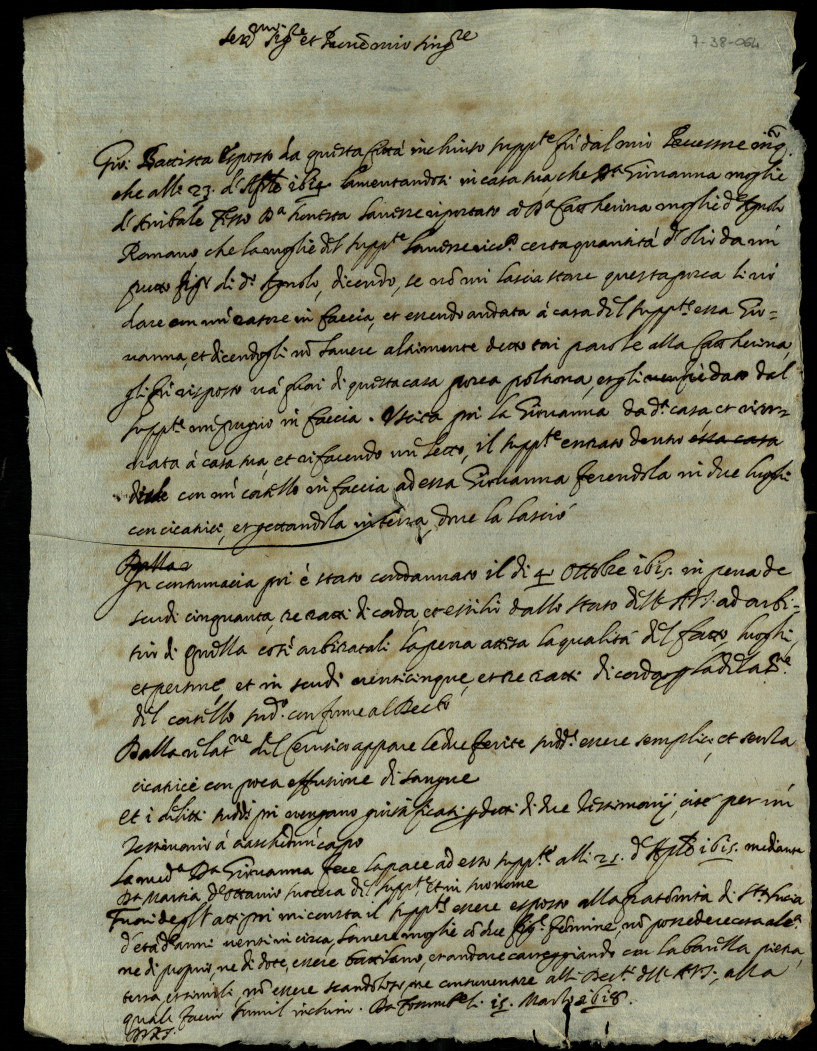 Ser.mo Sig.re et Padrone mio Sing.re
7-38-064
Gio: Battista Esposto da questa Città inchiuso supp.te fù dal mio Precessore inq.
che alli 23. d'Aple 1615 lamentandosi in casa sua, che D.a Giovanna moglie
d'Anibale havesse riportato à D.a Catherina moglie d'Agnolo
Romano che la moglie del supp.te havesse certa quantità d'olio da un
putto fig.lo di d.o Agnolo, dicendo, se nò mi lascia stare questa porca li vò
dare un in faccia, et essendo andata à casa del supp.te essa Gio-
vanna, et dicendogli nò havere altrimente detto tai parole alla Catherina,
gli fù risposto và fuori di questa casa porca poltrona, et gli venne dato dal
supp.te un pugno in faccia. Uscita poi la Giovanna da d.a casa et ritor-
nata à casa sua, et rifacendo un letto, il supp.te entrato dentro essa casa
diede con un coltello in faccia ad essa Giovanna ferendola in due luoghi
con cicatrici, et gettandola in terra, dove la lasciò
Dalla
In contumacia poi è stato condannato il dì 4 Ottobre 1615. in pena de
scudi cinquanta, tre tratti di corda, et essilio dallo stato dell'A.V. ad arbi-
trio di quella così arbitratali la pena attesa la qualità del fatto, luoghi,
et persone, et in scudi venticinque, et tre tratti di corda p la delat.ne
del coltello sud.o conforme al Decto
Dalla relat.ne del Cerusico appare le due ferite sudd.e essere semplici, et senza
cicatrice con poca effusione di sangue
et i delitti sudd.i poi vengono giustificati p detti di due Testimonij, cioè per un
Testimonio à ciaschedun capo
La med.a D.a Giovanna fece la pace ad esso supp.te alli 21. d'Aple 1615. mediante
D.a Martia d'Ottavio suocera del supp.te et in suo nome
Fuori degl'atti poi mi consta il supp.te essere esposto alla fraternità di S.ta Lucia
d'età d'anni venti in circa, havere moglie cò due fig.le femmine, nò possedere cosa alc.a
ne di proprio, ne di dote, essere battilano, et andare carreggiando con la barella pietra,
terra, et simili, nò essere scandoloso, ne alli Dec.ti dell'A.V., alla
quale faccio humil inchini. Da li 15. Marzo 1618.
D.V.A.S.